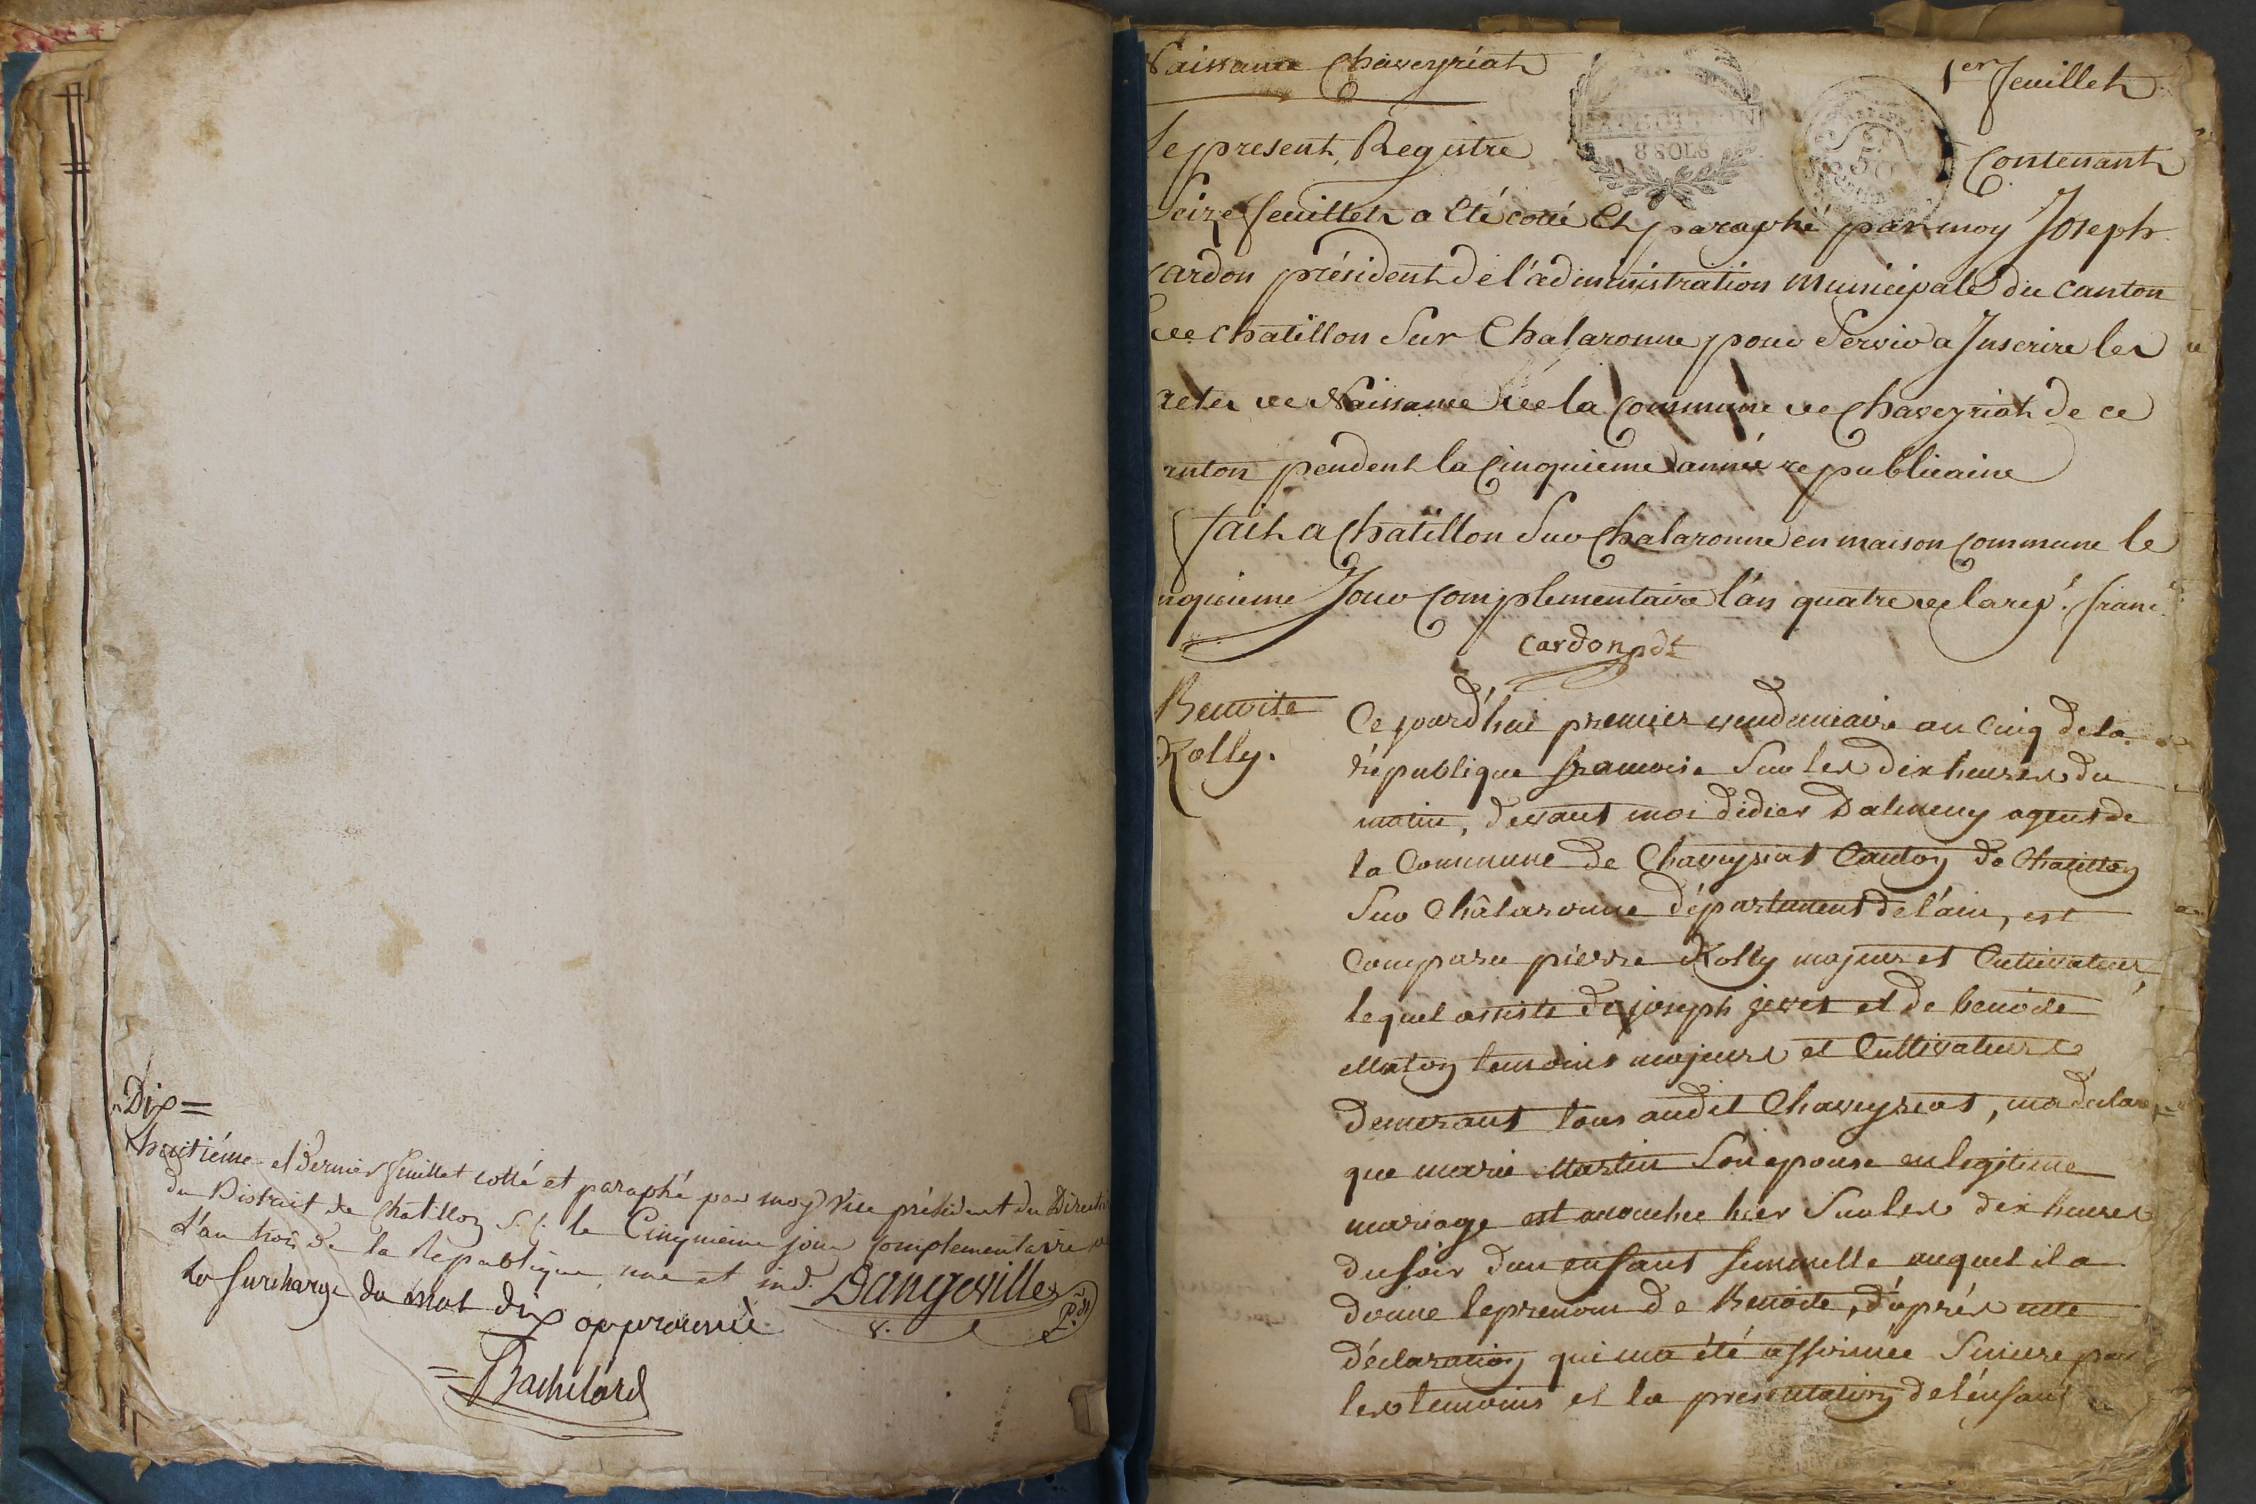 Dix=
huitième et dernier feuillet cotté et paraphé par moy Vice président du Directoi
du District de Chatillon S. C. le Cinquieme jour Complementaire
L'an trois de la République, une et ind.
Dangeville
P.dt
la surcharge du mot dix approuvé
Bachelard
Naissance Chaveyriat
1er feuillet
EXPEDITION
8 SOLS
50
Le present Registre contenant
Seize feuillets a eté cotté et paraphé par moy Joseph
Cardon président de l'administration Municipale du canton
de chatillon Sur Chalaronne pour Servir a Inscrire les
actes de Naissance de la Commune de Chaveyriat de ce
anton pendent la Cinquieme année republicaine
fait a Chatillon Sur Chalaronne en maison Commune le
nquieme Jour Complementaire l'an quatre de la rep. franc.
Cardon pdt
Benoite
Rolly.
Ce jourd'hui premier vendemiaire an Cinq de la
république francoise Sur les dix heures du
matin, devant moi didier Dalmeny agent de
la Commune de Chaveyriat Canton de Chatillon
Sur Châlaronne département de l'ain, est
Comparu pierre Rolly majeur et Cultivateur,
lequel assisté de joseph jevet et de benoite
Maton temoins majeurs et Cultivateurs
demeurant tous audit Chaveyriat, ma déclaré
que marie Martin Son epouse en legitime
mariage est acouchée hier Sur les dix heures
du soir d'un enfant femmelle auquel il a
donné le prenom de Benoite, d'après cette
déclaration qui m'a été affirmée Sincere par
les temoins et la présentation de l'enfant